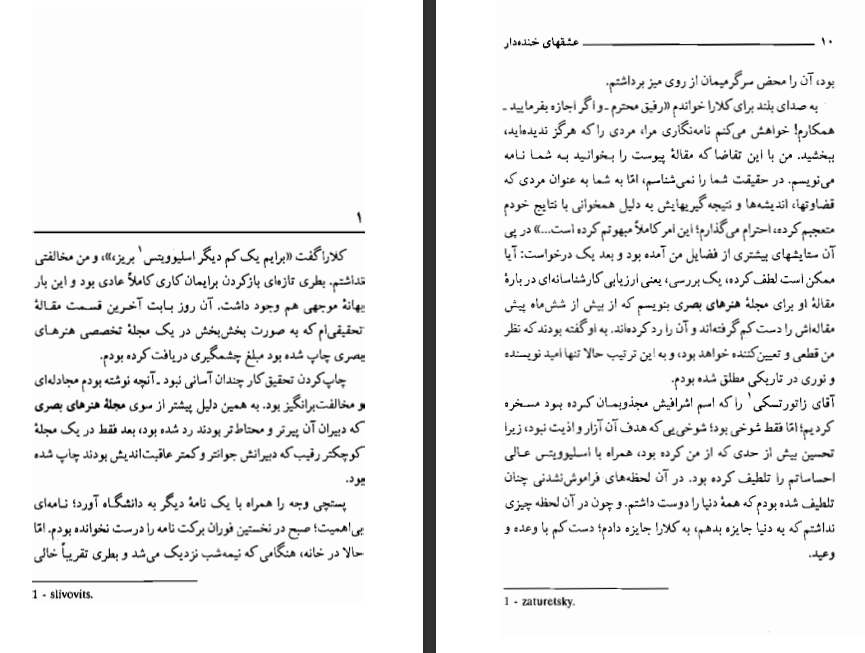 ۱
کلارا گفت «برایم یک کم دیگر اسلیوویتس۱ بریز،»، و من مخالفتی
نداشتم. بطری تازه‌ای بازکردن برایمان کاری کاملاً عادی بود و این بار
بهانهٔ موجهی هم وجود داشت. آن روز بابت آخرین قسمت مقالهٔ
تحقیقی‌ام که به صورت بخش‌بخش در یک مجلهٔ تخصصی هنرهای
بصری چاپ شده بود مبلغ چشمگیری دریافت کرده بودم.
چاپ‌کردن تحقیق کار چندان آسانی نبود ـ آنچه نوشته بودم مجادله‌ای
و مخالفت‌برانگیز بود. به همین دلیل پیشتر از سوی مجلهٔ هنرهای بصری
که دبیران آن پیرتر و محتاط‌تر بودند رد شده بود، بعد فقط در یک مجلهٔ
کوچکتر رقیب که دبیرانش جوانتر و کمتر عاقبت‌اندیش بودند چاپ شده
بود.
پستچی وجه را همراه با یک نامهٔ دیگر به دانشگاه آورد؛ نامه‌ای
بی‌اهمیت؛ صبح در نخستین فوران برکت نامه را درست نخوانده بودم. امّا
حالا در خانه، هنگامی که نیمه‌شب نزدیک می‌شد و بطری تقریباً خالی
1 - slivovits.
۱۰ عشقهای خنده‌دار
بود، آن را محض سرگرمیمان از روی میز برداشتم.
به صدای بلند برای کلارا خواندم «رفیق محترم ـ و اگر اجازه بفرمایید ـ
همکارم! خواهش می‌کنم نامه‌نگاری مرا، مردی را که هرگز ندیده‌اید،
ببخشید. من با این تقاضا که مقالهٔ پیوست را بخوانید به شما نامه
می‌نویسم. در حقیقت شما را نمی‌شناسم، امّا به شما به عنوان مردی که
قضاوتها، اندیشه‌ها و نتیجه‌گیریهایش به دلیل همخوانی با نتایج خودم
متعجبم کرده، احترام می‌گذارم؛ این امر کاملاً مبهوتم کرده است...» در پی
آن ستایشهای بیشتری از فضایل من آمده بود و بعد یک درخواست: آیا
ممکن است لطف کرده، یک بررسی، یعنی ارزیابی کارشناسانه‌ای در بارهٔ
مقالهٔ او برای مجلهٔ هنرهای بصری بنویسم که از بیش از شش‌ماه پیش
مقاله‌اش را دست‌کم گرفته‌اند و آن را رد کرده‌اند. به او گفته بودند که نظر
من قطعی و تعیین‌کننده خواهد بود، و به این ترتیب حالا تنها امید نویسنده
و نوری در تاریکی مطلق شده بودم.
آقای زاتورتسکی۱ را که اسم اشرافیش مجذوبمان کرده بود مسخره
کردیم؛ امّا فقط شوخی بود؛ شوخی‌یی که هدف آن آزار و اذیت نبود، زیرا
تحسین بیش از حدی که از من کرده بود، همراه با اسلیوویتس عالی
احساساتم را تلطیف کرده بود. در آن لحظه‌های فراموش‌نشدنی چنان
تلطیف شده بودم که همهٔ دنیا را دوست داشتم. و چون در آن لحظه چیزی
نداشتم که به دنیا جایزه بدهم، به کلارا جایزه دادم؛ دست کم با وعده و
وعید.
1 - zaturetsky.